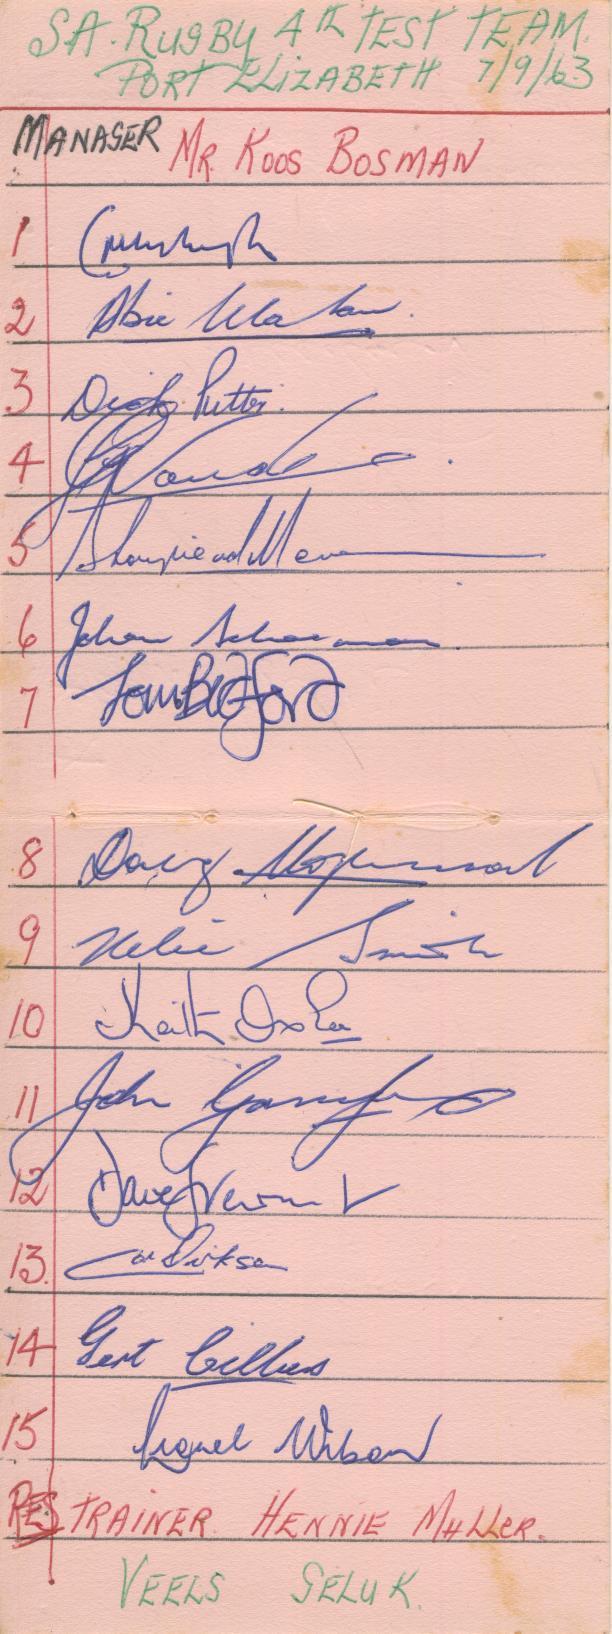 SA. RUGBY 4TH TEST TEAM.
PORT ELIZABETH 7/9/63
MANAGER MR. KOOS BOSMAN
1
2 Abie Malan.
3 Dick Putter.
4
5
6 Johan Schoeman.
7 Tom Bedford
8 Doug Hopwood
9 Nelie Smith
10 Keith Oxlee
11 John Gainsford
12 Dave Stewart
13. Dirksen
14 Gert Cilliers
15 Lionel Wilson
RES TRAINER. HENNIE MULLER.
VEELS GELUK.